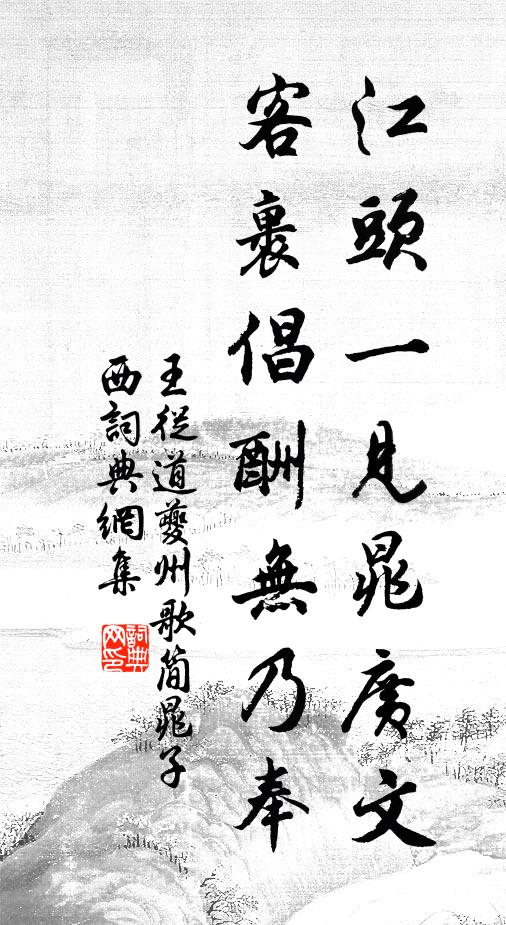 江頭一見晁廣文
客裏倡酬無乃奉
王從道夔州歌簡晁子
西詞典網集
詞典